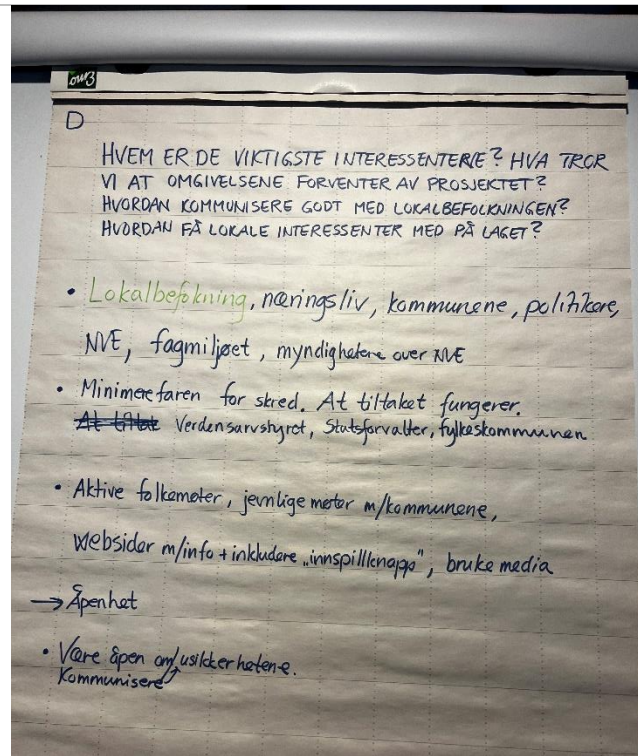 D
HVEM ER DE VIKTIGSTE INTERESSENTENE? HVA TROR
VI AT OMGIVELSENE FORVENTER AV PROSJEKTET?
HVORDAN KOMMUNISERE GODT MED LOKALBEFOLKNINGEN?
HVORDAN FÅ LOKALE INTERESSENTER MED PÅ LAGET?
• Lokalbefokning, næringsliv, kommunene, politikere,
NVE, fagmiljøet, myndighetene over NVE
• Minimere faren for skred. At tiltaket fungerer.
At tiltak Verdensarvstyret, Statsforvalter, fylkeskommunen
• Aktive folkemøter, jevnlige møter m/kommunene,
websider m/info + inkludere „innspillknapp", bruke media
→ Åpenhet
• Være åpen om/usikkerhetene.
Kommunisere